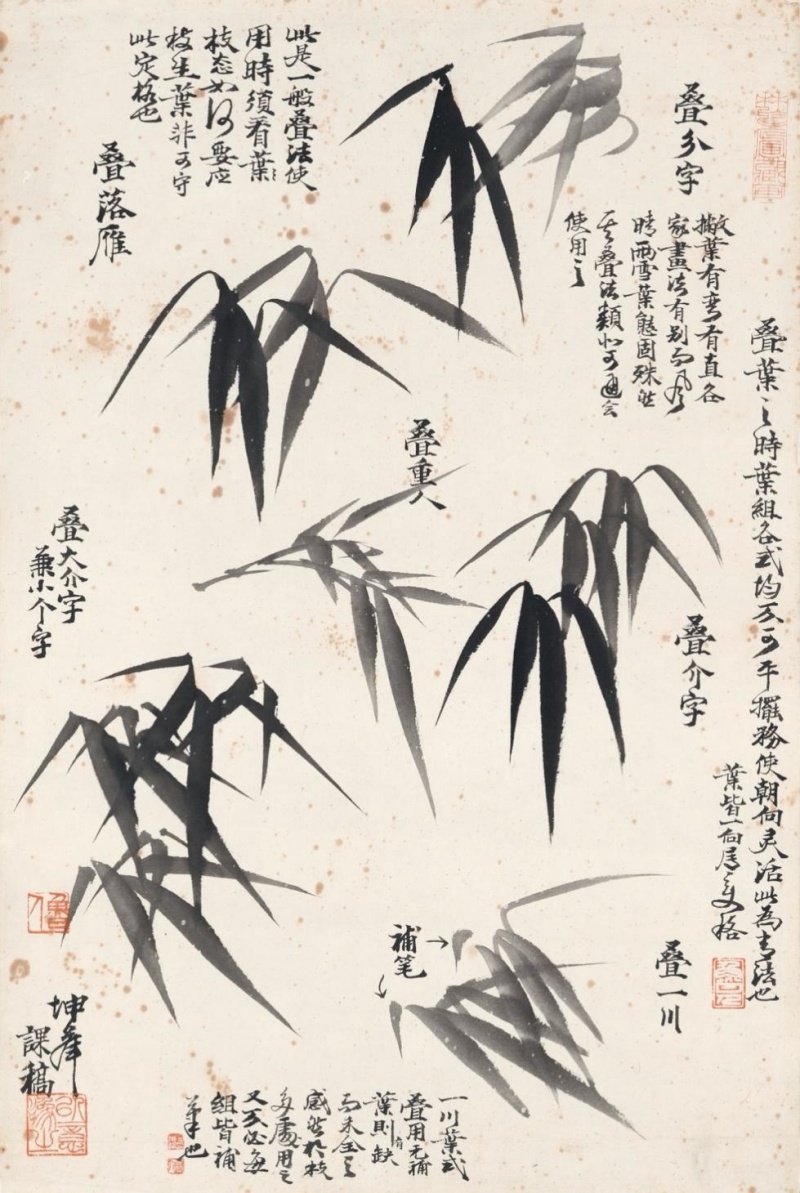 叠分字
撇葉有弯有直各
家畫法有别而風
晴雨雪葉態固殊然
其叠法類似可通会
使用之
此是一般叠法使
用時须看葉
枝态如何要应
枝生葉非可守
此定格也
叠落雁
叠葉之時葉組各式均不可平擺務使朝向灵活此為者法也
葉皆一向為之格
叠重人
叠大介字
兼小个字
叠介字
補笔
叠一川
一川葉式
叠用无補
葉則有缺
而未全之
感然於枝
多處用之
又不必每
組皆補
筆也
坤峰
課稿